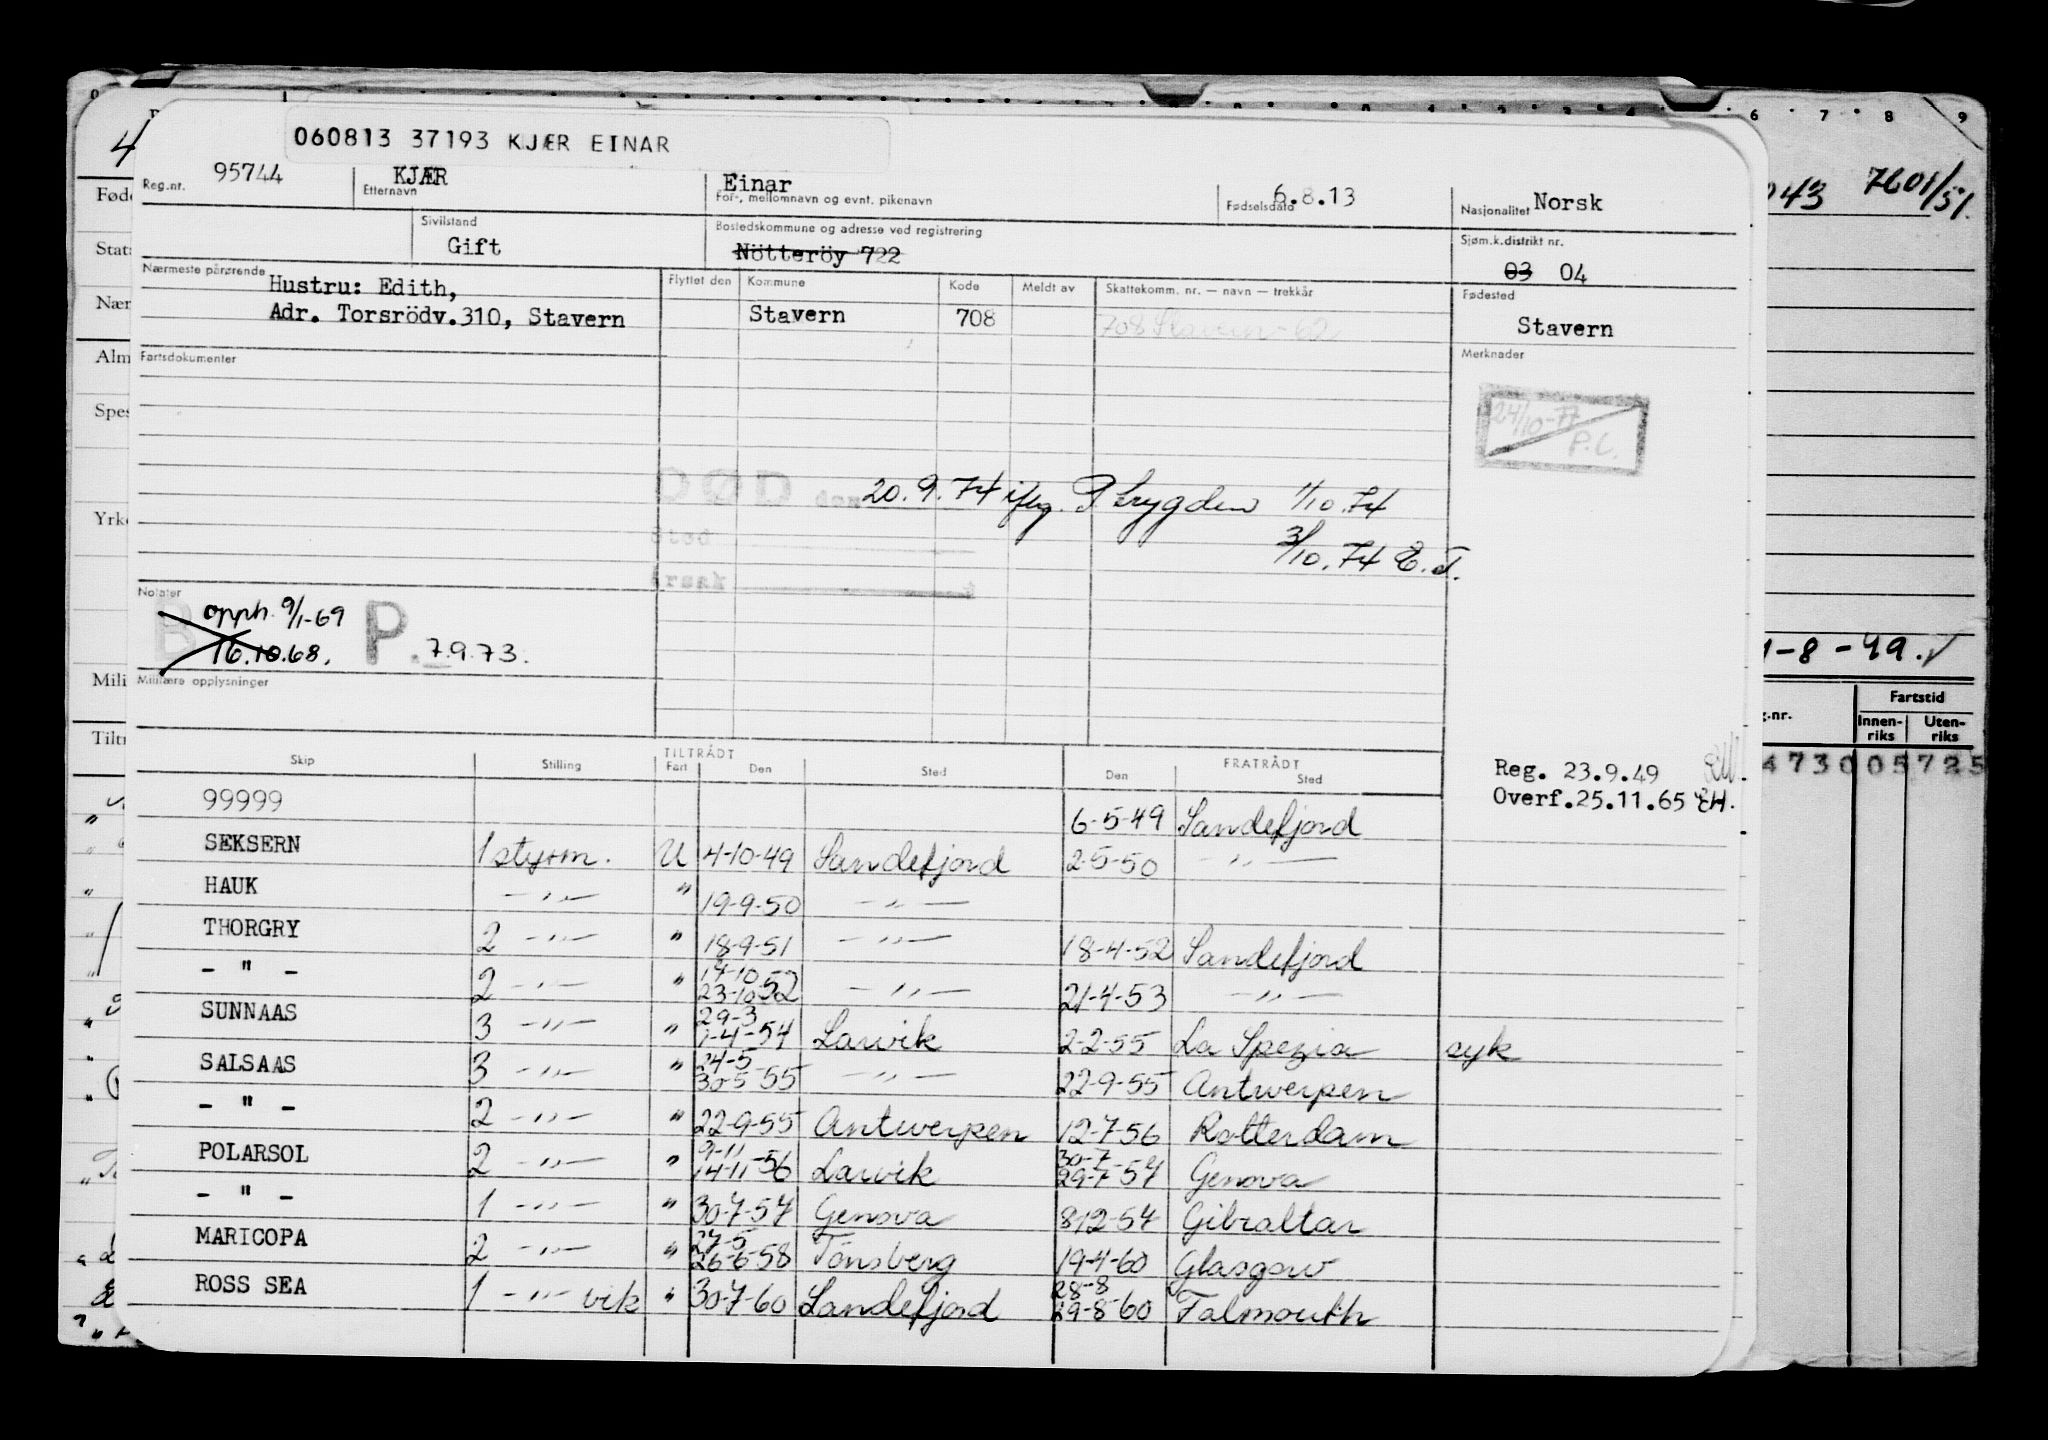 060813 37193 KJÆR EINAR
Reg.nr. 95744
KJÆR
Etternavn
Einar
For-, mellomnavn og evnt. pikenavn
Fødselsdato 6.8.13
Nasjonalitet Norsk
Sivilstand
Gift
Bostedskommune og adresse ved registrering
Nötteröy 722
Sjøm.k.distrikt nr.
03 04
Nærmeste pårørende
Hustru: Edith,
Adr. Torsrödv.310, Stavern
Flyttet den Kommune Kode Meldt av Skattekomm. nr. — navn — trekkår
Stavern 708 708 Stavern-62
Fødested
Stavern
Fartsdokumenter
Merknader
24/10-77
P.L.
DØD den 20.9.74 iflg. P trygden 1/10.74
3/10.74 E.T.
Sted
Årsak
Notater
B opph. 9/1-69
16.10.68. P. 7.9.73.
Militære opplysninger
TILTRÅDT FRATRÅDT
Skip Stilling Fart Den Sted Den Sted
Reg. 23.9.49
Overf.25.11.65 EH.
99999 6-5-49 Sandefjord
SEKSERN 1 styrm. U 4-10-49 Sandefjord 2-5-50 — „ —
HAUK — „ — " 19-9-50 — „ —
THORGRY 2 — „ — " 18-9-51 — „ — 18-4-52 Sandefjord
- " - 2 — „ — " 14-10 23-10-52 — „ — 21-4-53 — „ —
SUNNAAS 3 — „ — " 29-3 1-4-54 Larvik 2-2-55 La Spezia syk
SALSAAS 3 — „ — " 24-5 30-5-55 — „ — 22-9-55 Antwerpen
- " - 2 — „ — " 22-9-55 Antwerpen 12-7-56 Rotterdam
POLARSOL 2 — „ — " 9-11 14-11-56 Larvik 30-7 29-7-57 Genova
- " - 1 — „ — " 30-7-57 Genova 8-12-57 Gibraltar
MARICOPA 2 — „ — " 27-5 26-6-58 Tönsberg 19-4-60 Glasgow
ROSS SEA 1 — „ — vik " 30-7-60 Sandefjord 28-8 29-8-60 Falmouth
6 7 8 9
043 7601/51.
-8-49.
g.nr. Fartstid
Innen-riks Uten-riks
4730 05725
4
Føde
Stats
Nær
Alm
Spes
Yrke
Mili
Tiltr